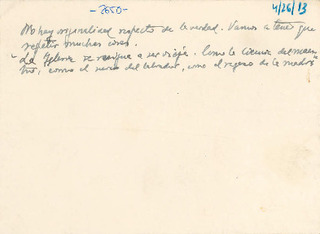 -2650-
4/26/13
No hay originalidad respecto de la verdad. Vamos a tener que
repetir muchas cosas.
"La Iglesia se resigna a ser vieja. Como la
tro, como el del labrador, como el regazo de la madre"